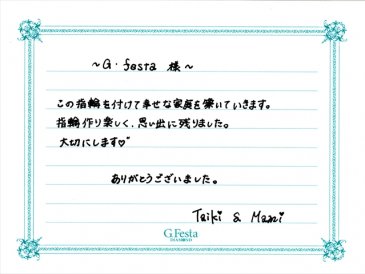 ～G・festa 様～
この指輪を付けて幸せな家庭を築いていきます。
指輪作り楽しく、思い出に残りました。
大切にします♡
ありがとうございました。
Taiki & Mami
G.Festa
DIAMOND